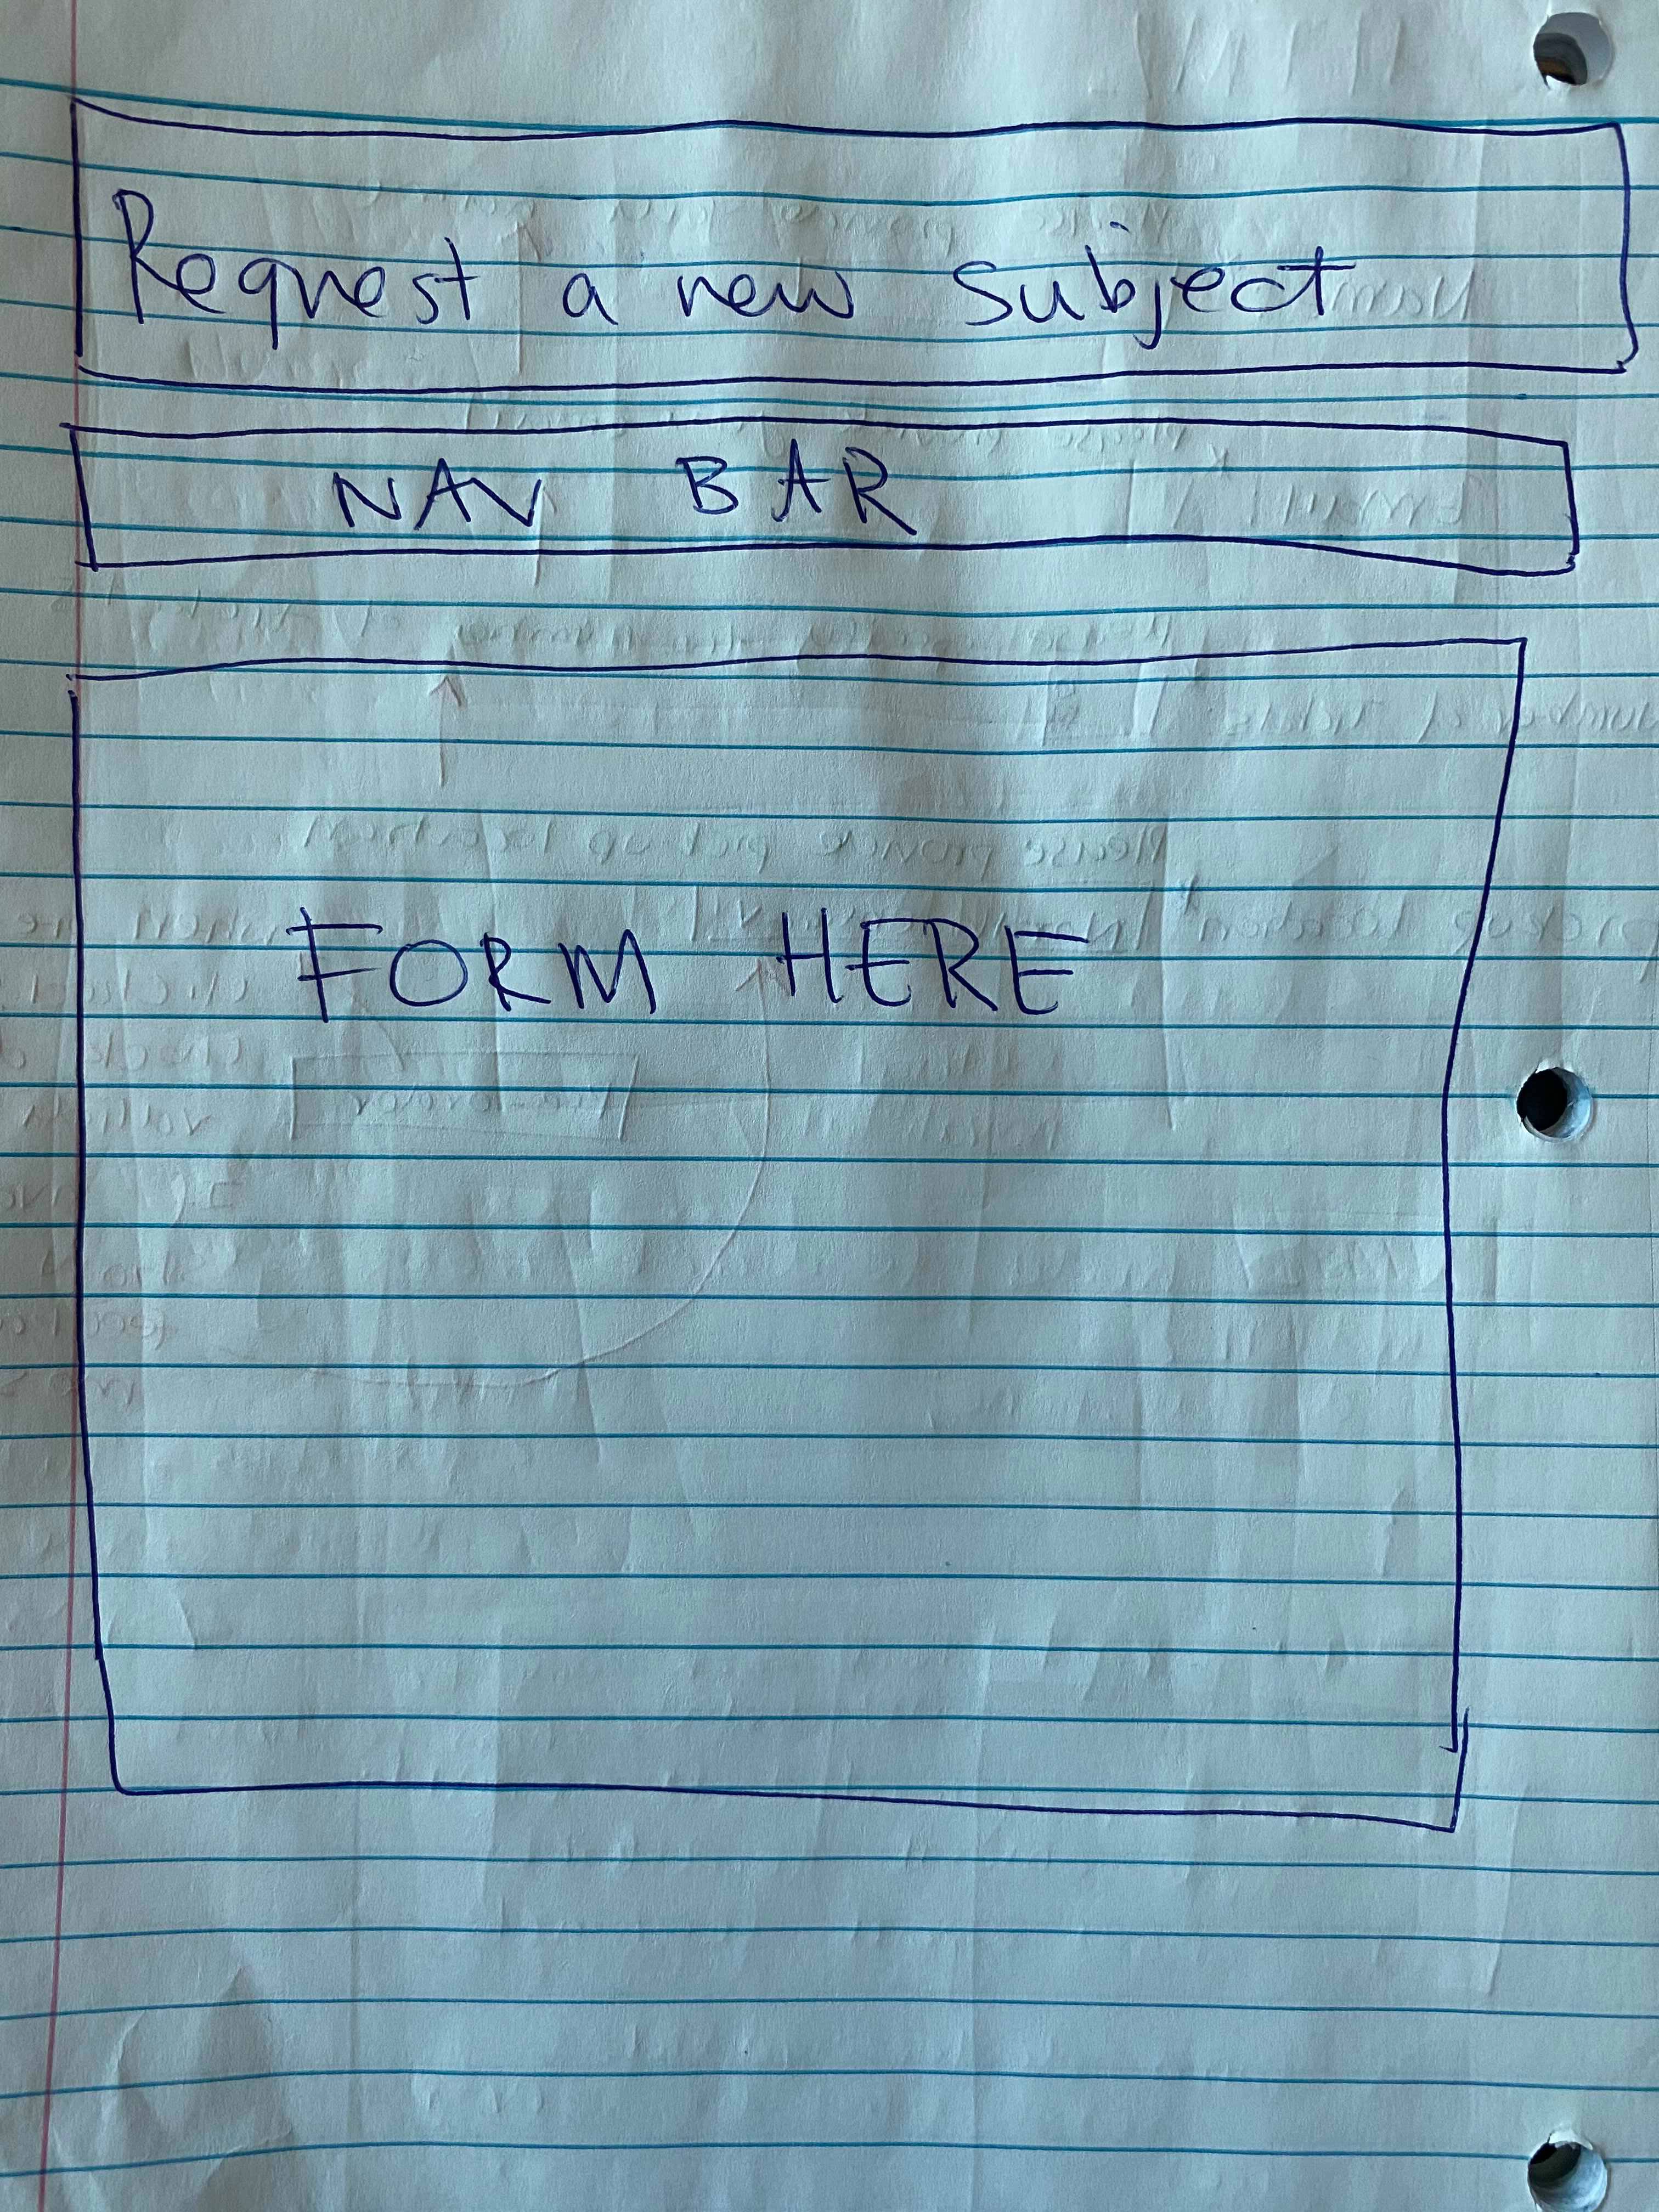 Request a new subject
NAV BAR
FORM HERE